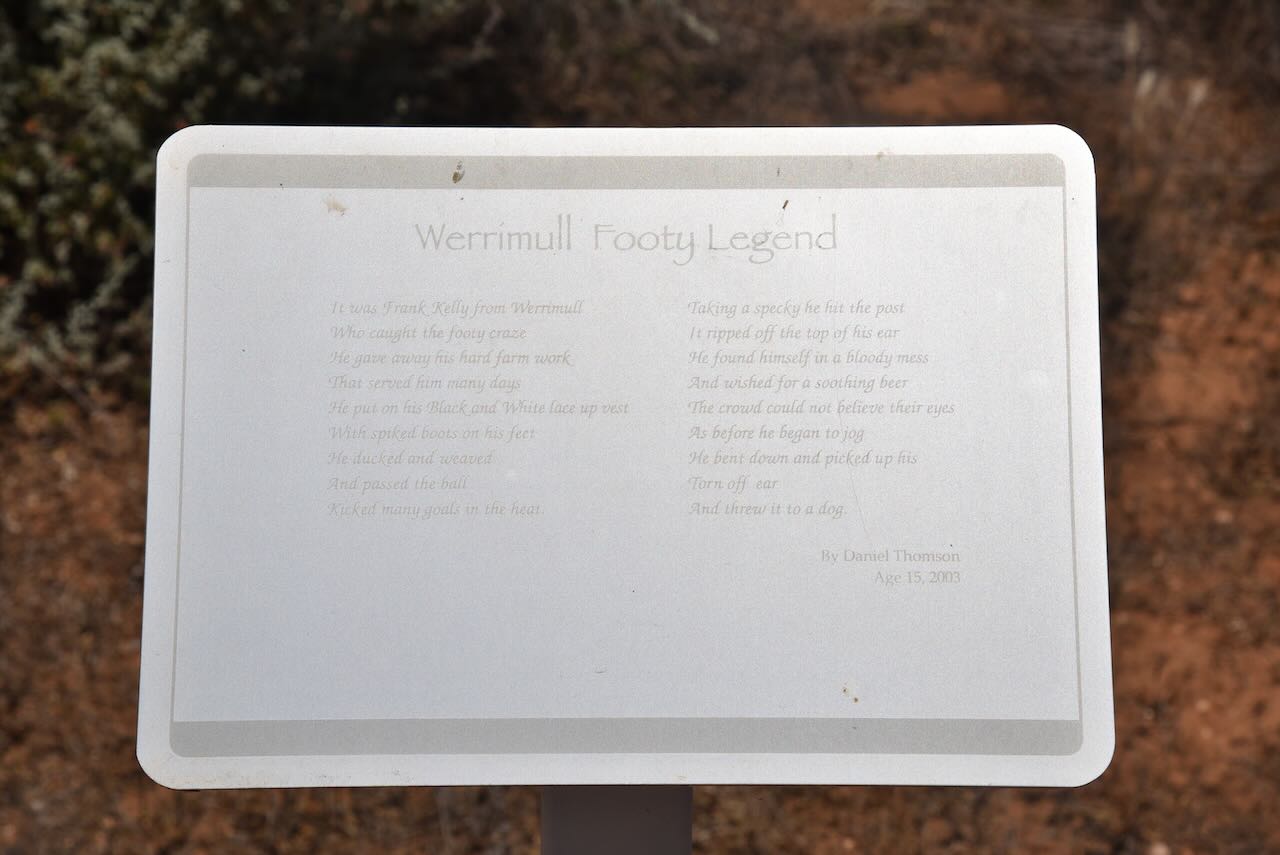 Werrimull Footy Legend
It was Frank Kelly from Werrimull
Who caught the footy craze
He gave away his hard farm work
That served him many days
He put on his Black and White lace up vest
With spiked boots on his feet
He ducked and weaved
And passed the ball
Kicked many goals in the heat.
Taking a specky he hit the post
It ripped off the top of his ear
He found himself in a bloody mess
And wished for a soothing beer
The crowd could not believe their eyes
As before he began to jog
He bent down and picked up his
Torn off ear
And threw it to a dog.
By Daniel Thomson
Age 15, 2003